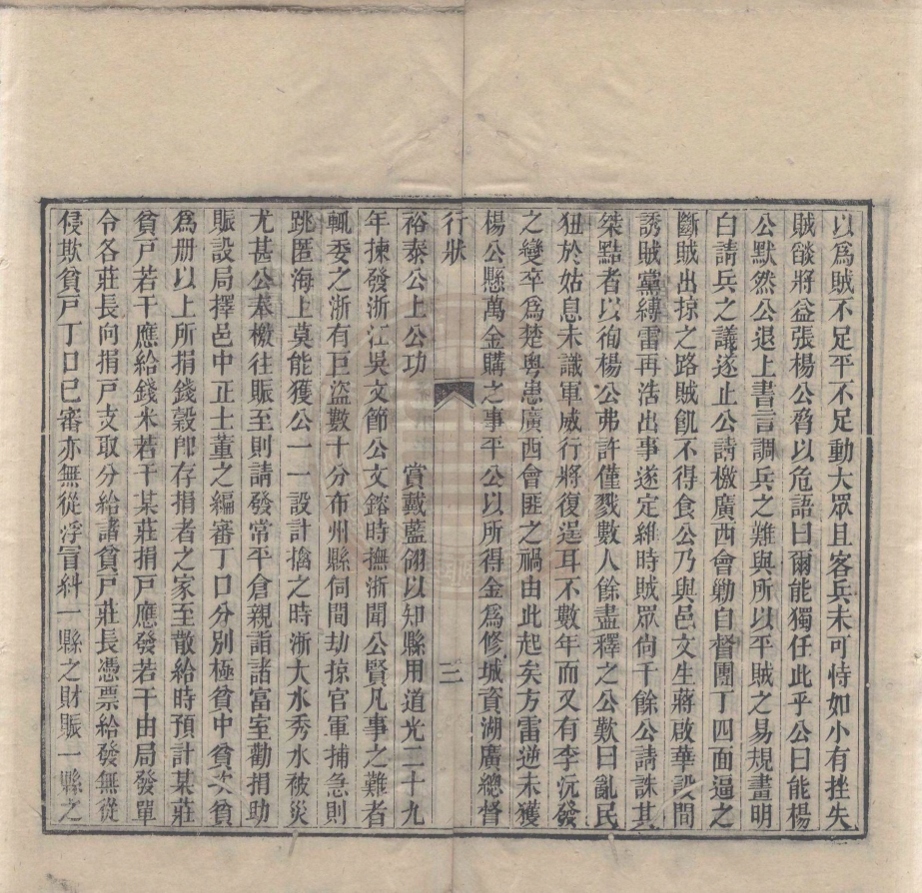 以為賊不足平不足動大眾且客兵未可恃如小有挫失
賊燄將益張楊公脅以危語曰爾能獨任此乎公曰能楊
公默然公退上書言調兵之難與所以平賊之易規畫明
白請兵之議遂止公請檄廣西會勦自督團丁四面逼之
斷賊出掠之路賊飢不得食公乃與邑文生蔣啟華設間
誘賊黨縛雷再浩出事遂定維時賊眾尙千餘公請誅其
桀黠者以徇楊公弗許僅戮數人餘盡釋之公歎曰亂民
狃於姑息未識軍威行將復逞耳不數年而又有李沅發
之變卒為楚粵患廣西會匪之禍由此起矣方雷逆未獲
楊公縣萬金購之事平公以所得金為修城資湖廣總督
行狀
三
裕泰公上公功　賞戴藍翎以知縣用道光二十九
年揀發浙江吳文節公文鎔時撫浙聞公賢凡事之難者
輒委之浙有巨盜數十分布州縣伺間劫掠官軍捕急則
跳匿海上莫能獲公一一設計擒之時浙大水秀水被災
尤甚公奉檄往賑至則請發常平倉親詣諸富室勸捐助
賑設局擇邑中正士董之編審丁口分別極貧中貧次貧
為册以上所捐錢穀卽存捐者之家至散給時預計某莊
貧戶若干應給錢米若干某莊捐戶應發若干由局發單
令各莊長向捐戶支取分給諸貧戶莊長憑票給發無從
侵欺貧戶丁口已審亦無從浮冒糾一縣之財賑一縣之